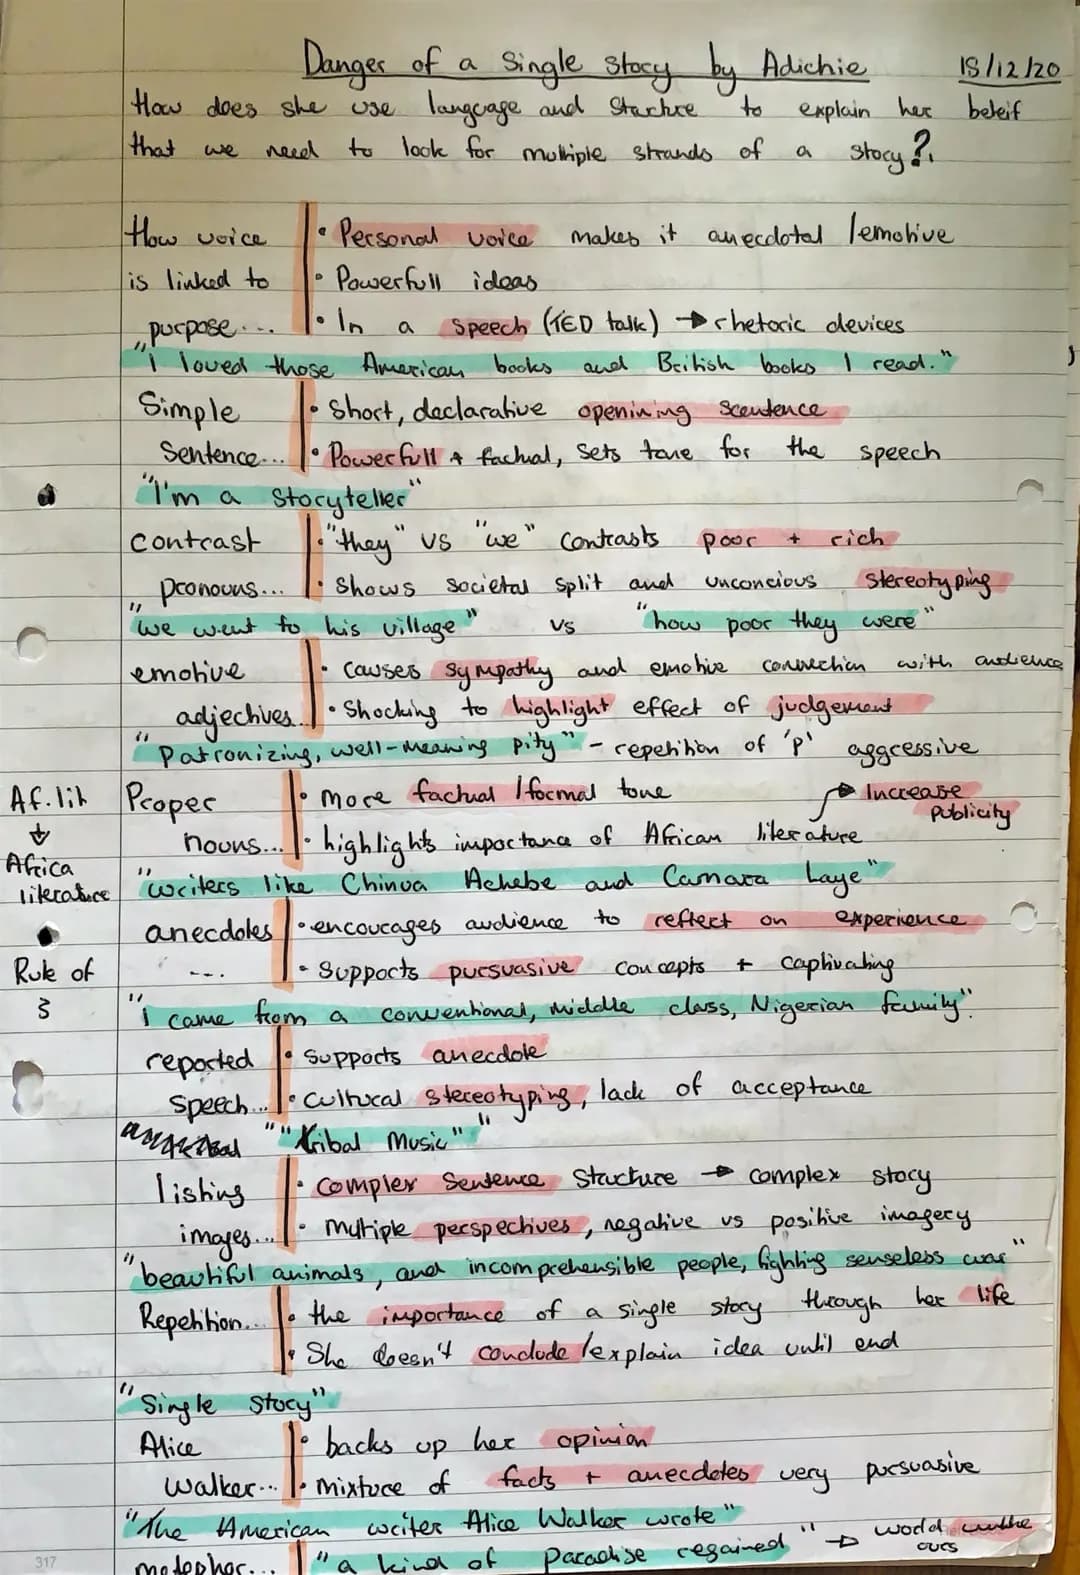 Danger of a Single Story by Adichie 15/12/20
How does she use language and Structure to explain her beleif
that we need to look for multiple strands of a story?
How voice • Personal voice makes it anecdotal /emotive
is linked to • Powerfull ideas
purpose... • In a speech (TED talk) → rhetoric devices
"I loved those American books and British books I read."
Simple • Short, declarative openining Scentence
Sentence... • Powerfull + factual, sets tone for the speech
"I'm a Storyteller"
contrast • "they" vs "we" contrasts poor + rich
pronouns... • Shows societal split and unconcious stereotyping
"we went to his village" vs "how poor they were"
emotive • causes sympathy and emotive connection with audience
adjectives... • Shocking to highlight effect of judgement
"Patronizing, well-meaning pity" - repetition of 'p' aggressive
Af.lit Proper • more factual /formal tone → Increase
↓ Publicity
Africa nouns... • highlights importance of African literature
literature "writers like Chinua Achebe and Camara Laye"
anecdotes • encourages audience to reflect on experience
Rule of ... • Supports pursuasive concepts + captivating
3 "I came from a conventional, middle class, Nigerian family".
reported • supports anecdote
Speech... • Cultural stereotyping, lack of acceptance
""tribal Music""
listing • complex Sentence Structure → complex story
images... • Multiple perspectives, negative vs positive imagery
"beautiful animals, and incomprehensible people, fighting senseless war"
Repetition... • the importance of a single story through her life
• She doesn't conclude /explain idea until end
"Single Story"
Alice • backs up her opinion
Walker... • mixture of facts + anecdotes very pursuasive
"The American writer Alice Walker wrote"
metaphor... "a kind of Paradise regained" → world unlike
ours
317